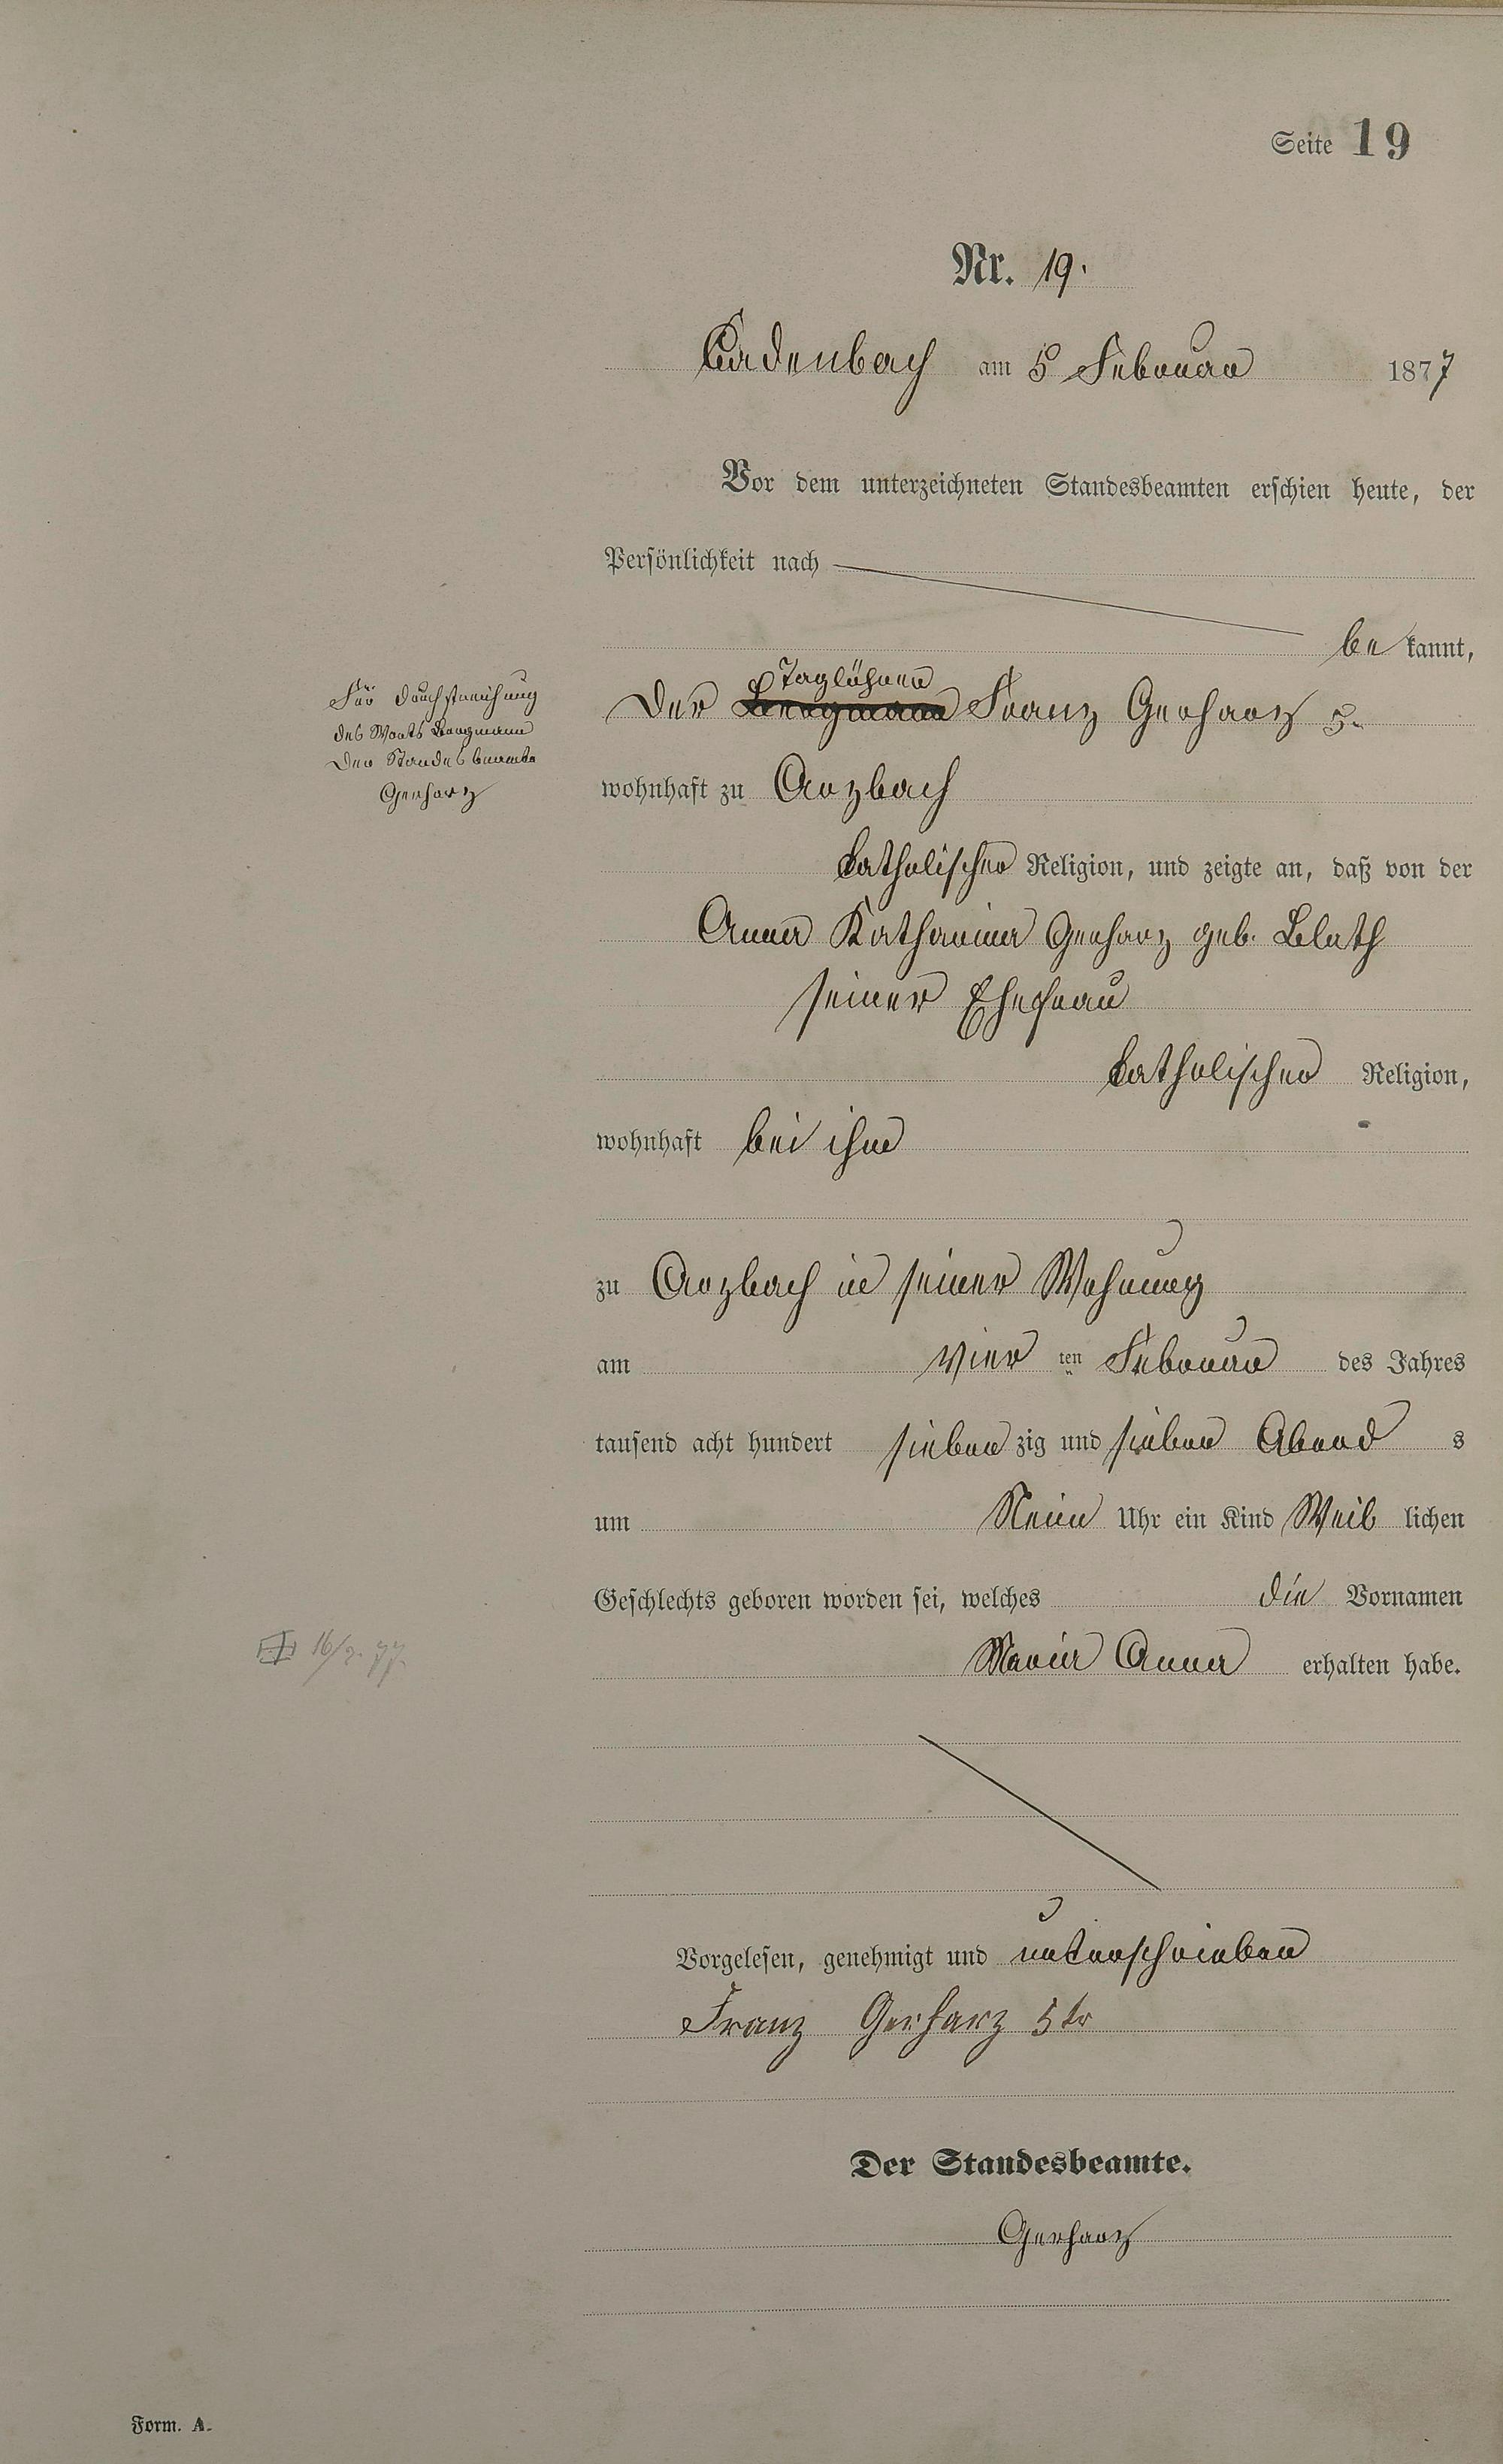 Seite 19
Nr. 19.
Cadenbach am 5 Februar 1877
Vor dem unterzeichneten Standesbeamten erschien heute, der
Persönlichkeit nach
be kannt,
Taglöhner
Der Bergmann Franz Gerharz 5.
Für Durchstreichung
des Worts Bergmann
Der Standesbeamte
Gerharz
wohnhaft zu Arzbach
katholischer Religion, und zeigte an, daß von der
Anna Katharina Gerharz geb. Blath
seiner Ehefrau
katholischer Religion,
wohnhaft bei ihm
zu Arzbach in seiner Wohnung
am vier ten Februar des Jahres
tausend acht hundert sieben zig und sieben Abend s
um Neun Uhr ein Kind Weib lichen
Geschlechts geboren worden sei, welches die Vornamen
Maria Anna erhalten habe.
Vorgelesen, genehmigt und unterschrieben
Franz Gerharz 5tr
Der Standesbeamte.
Gerharz
Form. A.